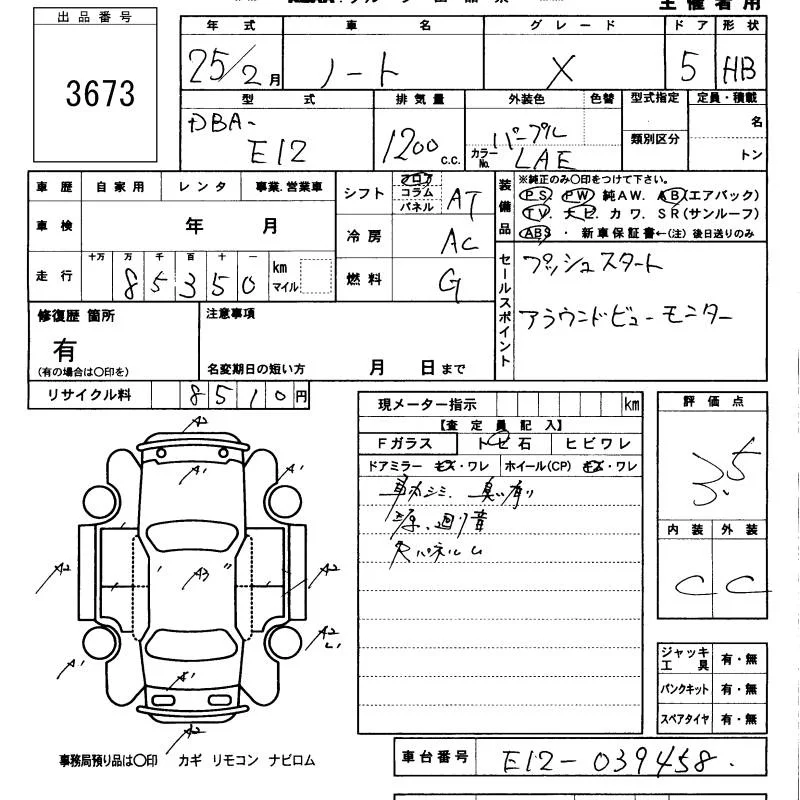 主催者用
出品番号
3673
年式 車名 グレード ドア 形状
25/2月 ノート X 5 HB
型式 排気量 外装色 色替 型式指定 定員・積載
DBA-
E12 1200 c.c. パープル カラーNo. LAE 類別区分 名
トン
車歴 自家用 レンタ 事業.営業車
車検 年 月
走行 十万 万 千 百 十 一
85350 km マイル
シフト フロア コラム パネル AT
冷房 AC
燃料 G
装備品 ※純正のみ〇印をつけて下さい。
PS. PW 純AW. AB(エアバック)
TV. ナビ カワ. SR(サンルーフ)
ABS ・ 新車保証書←(注) 後日送りのみ
セールスポイント
プッシュスタート
アラウンドビューモニター
修復歴 箇所
有
(有の場合は〇印を)
注意事項
名変期日の短い方 月 日まで
リサイクル料 8510円
現メーター指示 km
【査定員記入】
Fガラス トビ石 ヒビワレ
ドアミラー キズ・ワレ ホイール(CP) キズ・ワレ
車内シミ. 臭い有り
廻り音
評価点
3.5
内装 外装
C C
A2
A1 A1
A2 A3 A2
A2
A1
A1
A2
ジャッキ 工具 有・無
パンクキット 有・無
スペアタイヤ 有・無
事務局預り品は〇印 カギ リモコン ナビロム
車台番号 E12-039458.